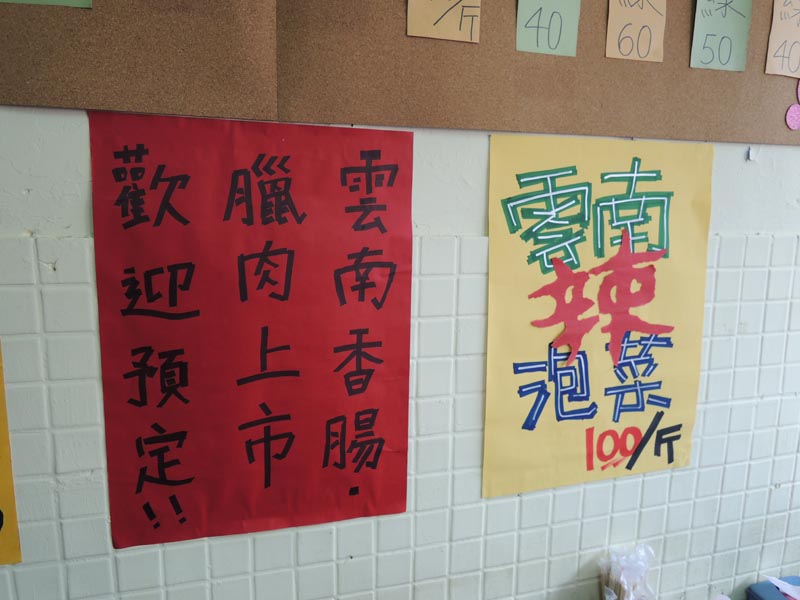 /斤
40
60
50
40
雲南香腸.
臘肉上市
歡迎預定!!
雲南
辣
泡菜
100/斤